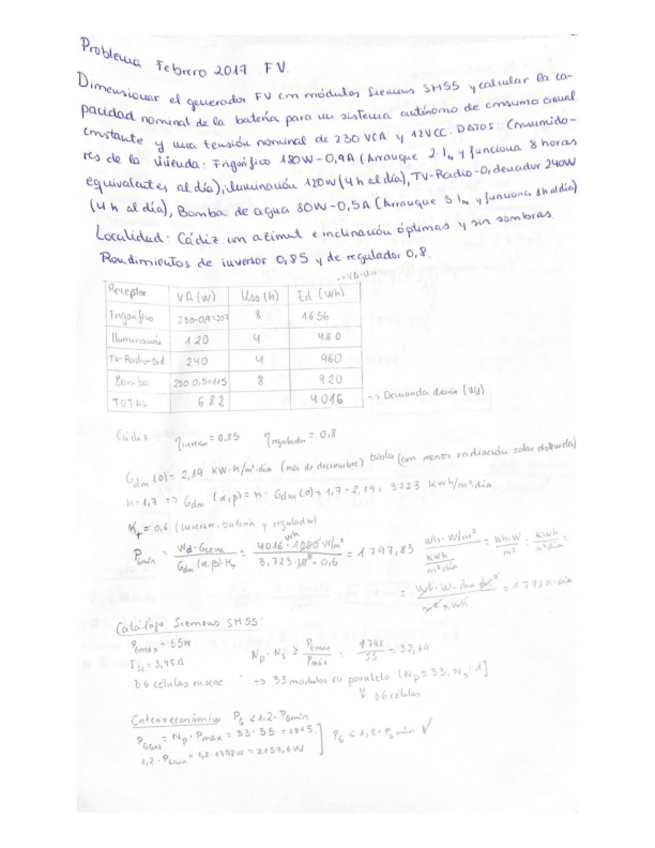 Problema Febrero 2017 FV.
Dimensionar el generador FV con módulos Siemens SM55 y calcular la ca-
pacidad nominal de la batería para un sistema autónomo de consumo anual
constante y una tensión nominal de 230 VCA y 12VCC. DATOS: Consumido-
res de la vivienda: Frigorífico 180W-0,9A (Arranque 2·In y funciona 8 horas
equivalentes al día), iluminación 120W (4h al día), TV-Radio-Ordenador 240W
(4h al día), Bomba de agua 80W-0,5A (Arranque 3 In y funciona 8h al día)
Localidad: Cádiz con azimut e inclinación óptimas y sin sombras.
Rendimientos de inversor 0,85 y de regulador 0,8.
Receptor VA (W) Uso (h) Ed (Wh)
Frigorífico 230·0,9=207 8 1656
Iluminación 120 4 480
TV-Radio-Ord 240 4 960
Bomba 230·0,5=115 8 920
TOTAL 682 4016 => Demanda diaria (Wd)
Cádiz ηinversor = 0,85 ηregulador = 0,8
Gdm (0) = 2,19 kW·h/m²·día (mes de diciembre) tabla (con menos radiación solar
K=1,7 => Gdm (α,β) = K · Gdm (0) = 1,7 · 2,19 = 3723 kWh/m²día
Kt = 0,6 (Inversor, batería y regulador)
PGmín = Wd · GCEM / Gdm (α,β)·Kt = 4016 Wh · 1000 W/m² / 3,723·10³ · 0,6 = 1797,83 Wh·W/m² / kWh/m²día
= 1798
Catálogo Siemens SM55:
PGmáx = 55W
Isc = 3,45A
36 células en serie
Np · Ns ≥ PGmín / Pmáx = 1798 / 55 = 32,69
=> 33 módulos en paralelo [Np = 33, Ns = 1]
36 células
Criterio económico PG < 1,2 · PGmín
PGGN = Np · Pmáx = 33 · 55 = 1815
1,2 · PGmín = 1,2 · 1798W = 2157,6W
PG < 1,2 · PGmín √